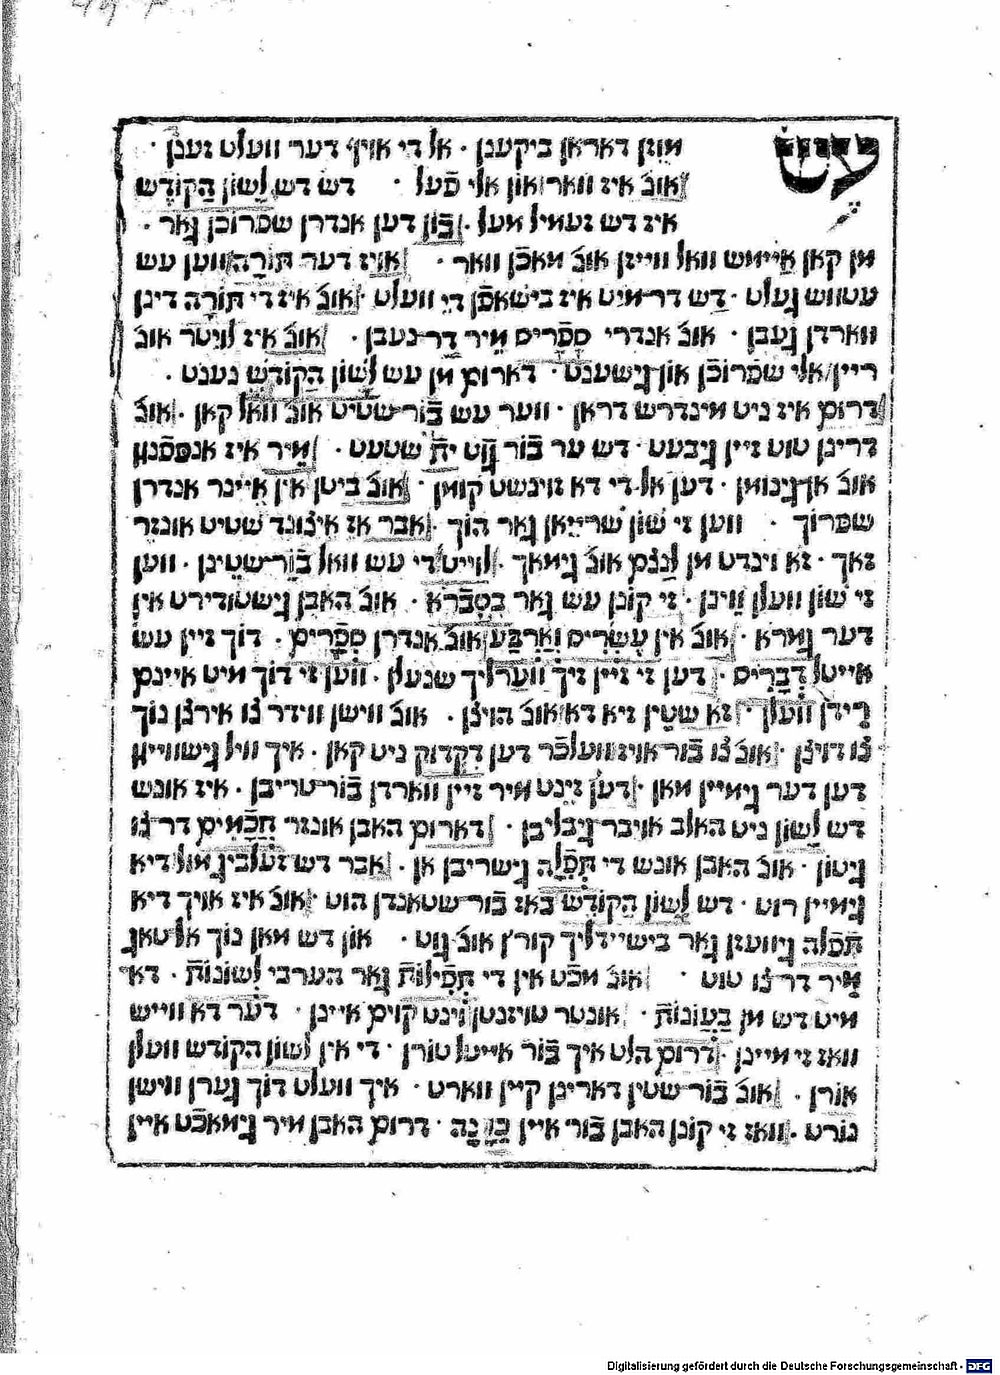 עש מוזן דאראן ביקענן · אל די אויף דער וועלט זענן ·
אונ׳ איז וואר און אלי פֿעל · דש דש לָשׁוֹן הַקוֹדֶש
איז דש זעמיל מעל · בֿון דען אנדרן שפרוכֿן גאר ·
מן קאן איימש וואל ווייזן אונ׳ מאכֿן וואר · אויז דער תּוֹרָה ווען עש
עטווש געלט · דַש דר מיט איז בישאפֿן דיֵ וועלט · אונ׳ איז די תּוֹרָה דינן
ווארדן געבן · אונ׳ אנדרי סְפָרִים מִיר דַר נעבן · אונ׳ איז לויטר אונ׳
ריין אלי שפרוכֿן און גישענט · דארום מן עש לָשׁוֹן הַקוֹדֶשׁ נענט ·
דרום איז ניט מינדרש דראן · ווער עש בֿור שטיט אונ׳ וואל קאן · אונ׳
דרינן טוט זיין גיבעט · דש ער בֿור גוט ית׳ שטעט · מִיר איז אנפפנגן
אונ׳ אן גינומן · דען אל די דא זוינשט קומן · אונ׳ ביטן אין איינר אנדרן
שפרוך · ווען זי שון שרייאן גאר הוך · אבר אז איצונד שטיט אונזר
זאך · זא וינדט מן לַנְגם אונ׳ גימאך · לוייט די עש וואל בֿור שטינן · ווען
זי שון וועלן ווינן · זי קונן עש גאר בִסְבְרָא · אונ׳ האבן גישטודירט אין
דער גְמָרָא · אונ׳ אין עֶשְׂרִים וְאַרְבַּע אונ׳ אנדרן סְפָרִים · דוך זיין עש
אייטל דְבָרִים · דען זי זיין זיך ווערליך שנעלן · ווען זי דוך מיט איינם
רידן וועלן · זא שטין זיא דא אונ׳ הוצן · אונ׳ ווישן ווידר צו אירצן נוך
צו דוצן · אונ׳ צו בֿור אויז וועלכֿר דען דִקְדוּק ניט קאן · איך וויל גישווייגן
דען דער גימיין מאן · דען זינט מיר זיין ווארדן בֿור טריבן · איז אונש
דש לָשׁוֹן ניט האלב אויבר גיבליבן · דארום האבן אונזר חֲכָמִים דר צו
גיטון · אונ׳ האבן אונש די תְּפִלָה גישריבן אן · אבר דש זעלביג מול דיא
גימיין רוט · דש לָשׁוֹן הַקוֹדֶשׁ באז בֿור שטאנדן הוט · אונ׳ איז אויך דיא
תְּפִלָה גיוועזן גאר בישיידליך קורץ אונ׳ גוט · און דש מאן נוך אל טאג
מִיר דר צו טוט · אונ׳ מכֿט אין די תְּפִילוֹת גאר הערבי לְשׁוֹנוֹת · דא
מיט דש מן בַעֲווֹנוֹת · אונטר טויזנטן וינט קוים איינן · דער דא ווייש
וואז זי מיינן · דרום הלט איך בֿור אייטל טורן · די אין לשון הקודש וועלן
אורן · אונ׳ בֿור שטין דארינן קיין ווארט · איך וועלט דוך גערן ווישן
נורט · וואז זי קונן האבן בֿור איין כַּוָנָה · דרום האבן מיר גימאכֿט איין
Digitalisierung gefördert durch die Deutsche Forschungsgemeinschaft - DFG